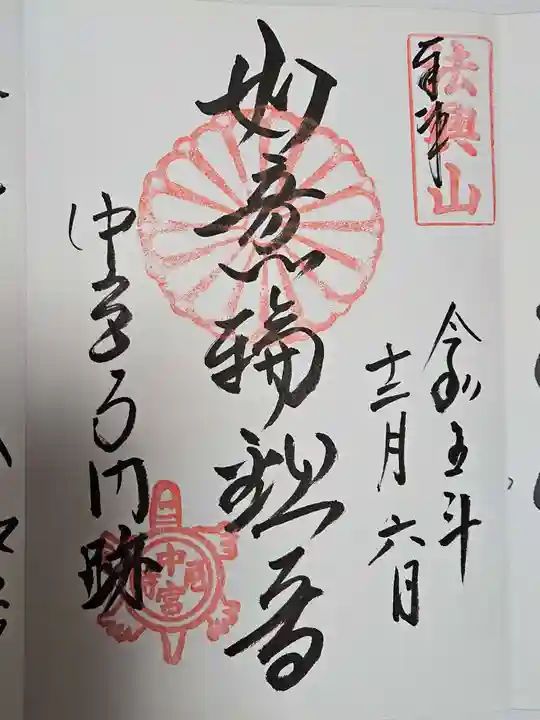 奉拝
法興山
令和五年
十二月六日
如意輪観音
中宮寺門跡
中宮寺